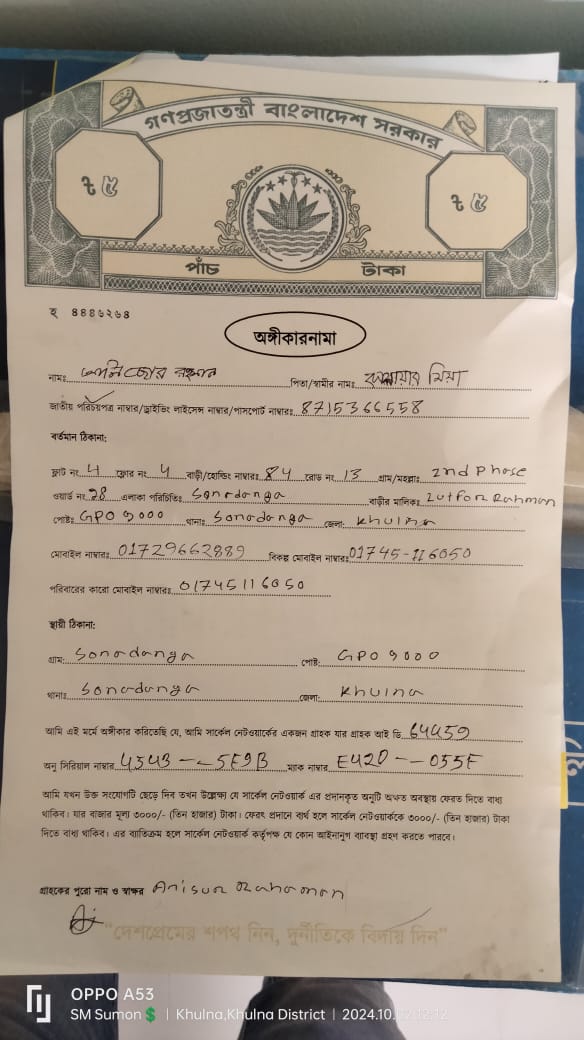 গণপ্রজাতন্ত্রী বাংলাদেশ সরকার
৳ ৫ ৳ ৫
পাঁচ টাকা
হ ৪৪৪৬২৬৪
অঙ্গীকারনামা
নামঃ রহমান পিতা/স্বামীর নামঃ মিয়া
জাতীয় পরিচয়পত্র নাম্বার/ড্রাইভিং লাইসেন্স নাম্বার/পাসপোর্ট নাম্বারঃ 8715366558
বর্তমান ঠিকানা:
ফ্লাট নং 4 ফ্লোর নং 4 বাড়ী/হোল্ডিং নাম্বারঃ 84 রোড নং 13 গ্রাম/মহল্লাঃ 2nd Phase
ওয়ার্ড নং এলাকা পরিচিতিঃ Sonadanga বাড়ীর মালিকঃ Lutfor Rahman
পোষ্টঃ GPO 9000 থানাঃ Sonadanga জেলা: Khulna
মোবাইল নাম্বারঃ 01729662889 বিকল্প মোবাইল নাম্বারঃ 01745-116050
পরিবারের কারো মোবাইল নাম্বারঃ 01745116050
স্থায়ী ঠিকানা:
গ্রাম: Sonadanga পোষ্ট: GPO 9000
থানাঃ Sonadanga জেলা: Khulna
আমি এই মর্মে অঙ্গীকার করিতেছি যে, আমি সার্কেল নেটওয়ার্কের একজন গ্রাহক যার গ্রাহক আই ডি 64459
অনু সিরিয়াল নাম্বার 4543--5F9B ম্যাক নাম্বার E420--055F
আমি যখন উক্ত সংযোগটি ছেড়ে দিব তখন উল্লেক্ষ্য যে সার্কেল নেটওয়ার্ক এর প্রদানকৃত অনুটি অক্ষত অবস্থায় ফেরত দিতে বাধ্য
থাকিব। যার বাজার মূল্য ৩০০০/- (তিন হাজার) টাকা। ফেরৎ প্রদানে ব্যর্থ হলে সার্কেল নেটওয়ার্ককে ৩০০০/- (তিন হাজার) টাকা
দিতে বাধ্য থাকিব। এর ব্যতিক্রম হলে সার্কেল নেটওয়ার্ক কর্তৃপক্ষ যে কোন আইনানুগ ব্যাবস্থা গ্রহণ করতে পারবে।
গ্রাহকের পুরো নাম ও স্বাক্ষর Anisur Rahaman
"দেশপ্রেমের শপথ নিন, দুর্নীতিকে বিদায় দিন"
OPPO A53
SM Sumon💲 | Khulna,Khulna District | 2024.10. 12:12